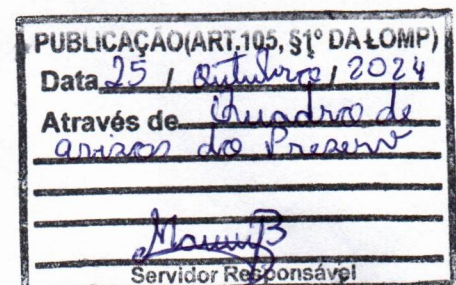 PUBLICAÇÃO(ART.105, §1º DA LOMP)
Data 25 / Outubro / 2024
Através de Quadro de
avisos do Preserv
Servidor Responsável